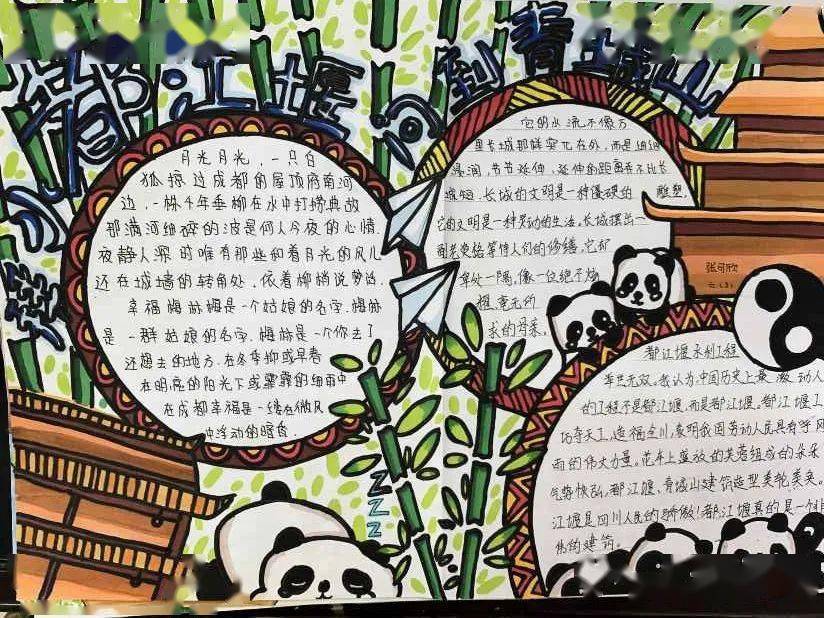 都江堰
到青城山
月光月光，一只白
狐掠过成都的屋顶府南河
边，一株千年垂柳在水中打捞典故
那满河细碎的波是何人今夜的心情
夜静人深的唯有那些和着月光的风儿
还在城墙的转角处，依着柳梢说梦话，
幸福梅林梅是一个姑娘的名字，梅林
是一群姑娘的名字，梅林是一个你去了
还想去的地方，在冬季抑或早春
在明亮的阳光下或霏霏的细雨中
在成都幸福是一缕在微风
中浮动的暗香。
它的水流不像万
里长城那样突兀在外，而是细细
浸润，节节延伸，延伸的距离并不比长
城短，长城的文明是一种僵硬的雕塑，
它的文明是一种灵动的生活，长城摆出一
副老资格等待人们的修缮，它却
卑处一隅，像一位绝不炫
耀，毫无所
求的母亲。
张可欣
都江堰水利工程
举世无双。我认为，中国历史上最激动人
的工程不是都江堰，而是都江堰。都江堰工
巧夺天工，造福全川，表明我国劳动人民具有呼风
雨的伟大力量。
气势恢弘，都江堰、青城山建筑造型美轮美奂。
江堰是四川人民的骄傲！都江堰真的是一个非
伟的建筑。
ZZZ